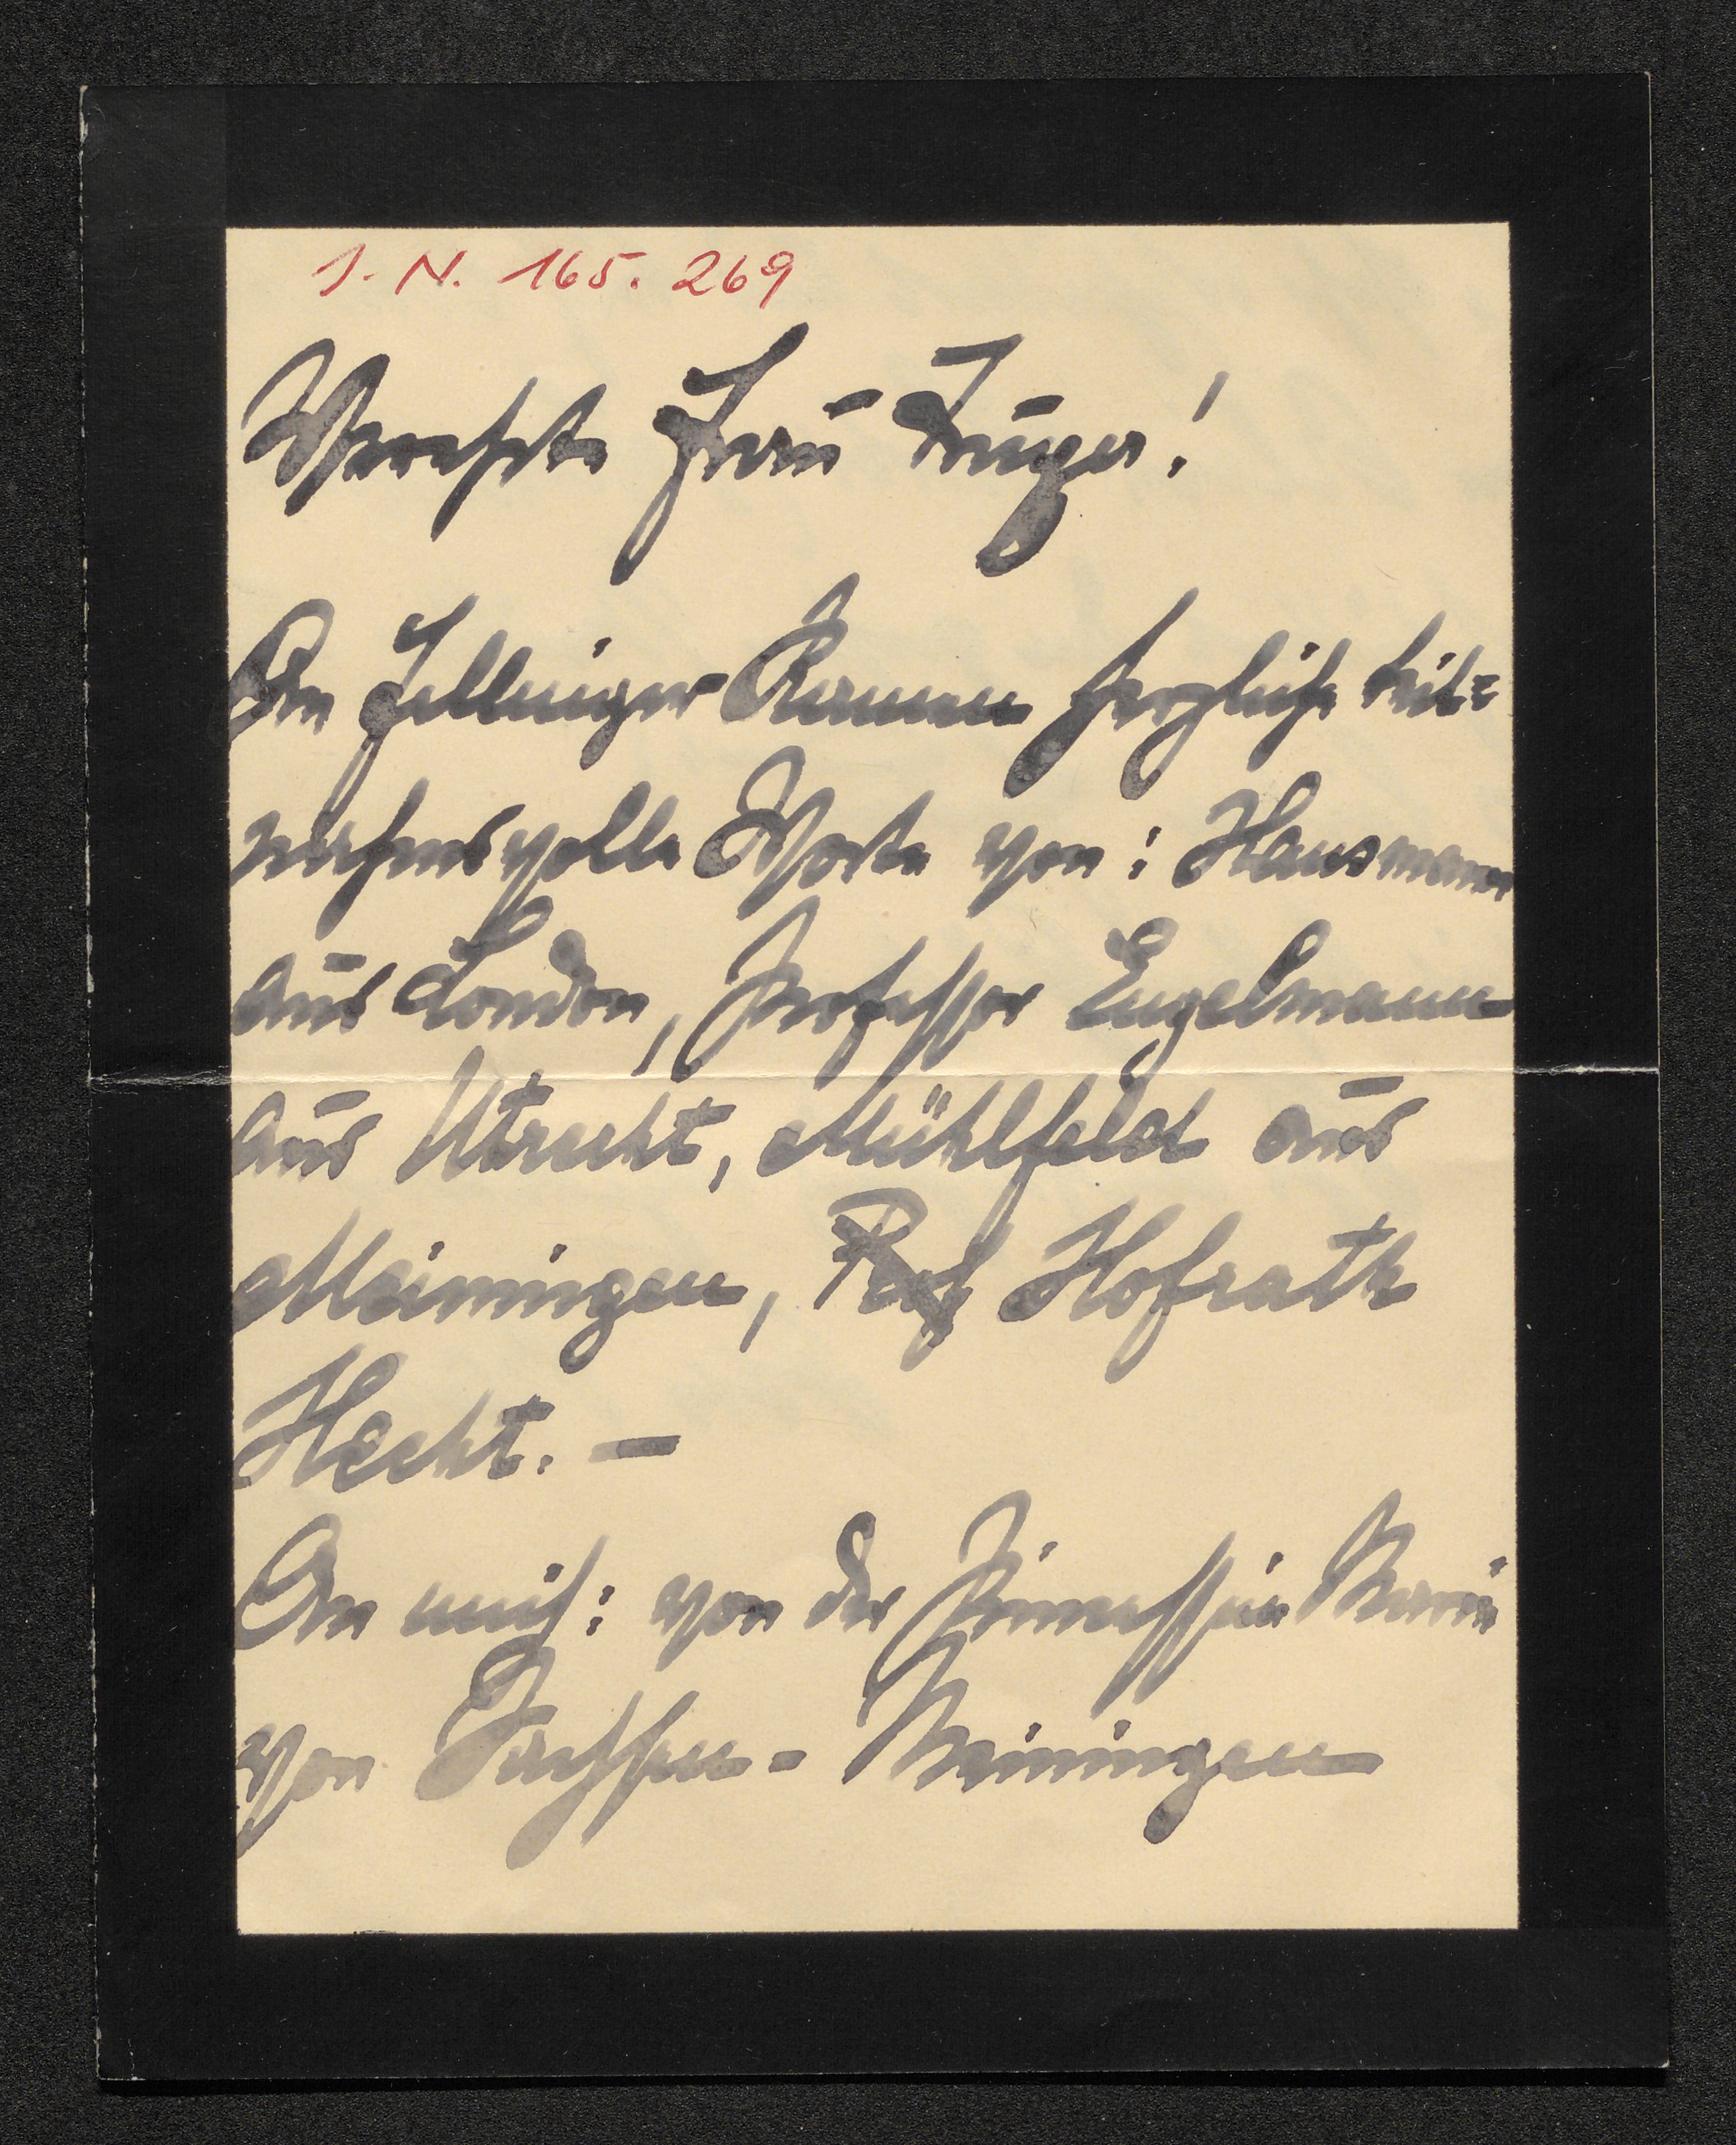 I. N. 165. 269
Verehrte Frau Truxa!
An Fellinger Kamen herzliche teil=
nahmsvolle Worte von: Hausmann
aus London, Professor Engelmann
aus Utrecht, Mühlfeld aus
Meiningen, Prof Hofrath
Hecht. –
An mich: von der Prinzessin Marie
von Sachsen-Meiningen